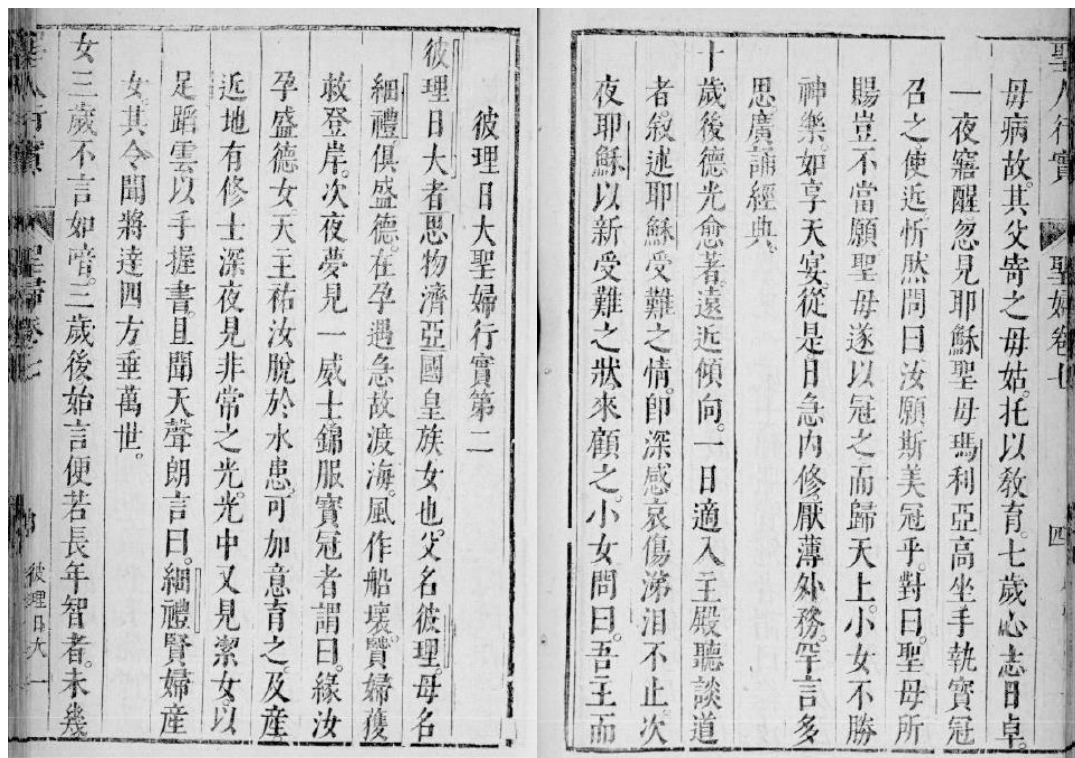 聖人行實 聖婦卷七 四
母病故。其父寄之母姑。托以教育。七歲心志日卓。
一夜寤醒忽見耶穌聖母瑪利亞高坐手執寶冠
召之。使近忻然問曰汝願斯美冠乎。對曰聖母所
賜豈不當願聖母遂以冠之而歸天上。小女不勝
神樂。如享天宴。從是日急內修。厭薄外務。罕言多
思廣誦經典。
十歲後德光愈著。遠近傾向。一日適入主殿聽談道
者。敘述耶穌受難之情。卽深感哀傷涕泪不止。次
夜耶穌以新受難之狀來顧之。小女問曰。吾主而
彼理日大聖婦行實第二
彼理日大者思物濟亞國皇族女也。父名彼理。母名
細禮。俱盛德。在孕遇急故渡海。風作船壞。賢婦獲
救登岸。次夜夢見一威士錦服寶冠者謂曰。緣汝
孕盛德女天王祐汝脫於水患。可加意育之。及產
近地有修士深夜見非常之光。光中又見潔女。以
足蹈雲以手握書。且聞天聲朗言曰。細禮賢婦產
女。其令聞將達四方垂萬世。
女三歲不言如喑。三歲後始言便若長年智者。未幾
聖人行實 聖婦卷七 彼理日大 一